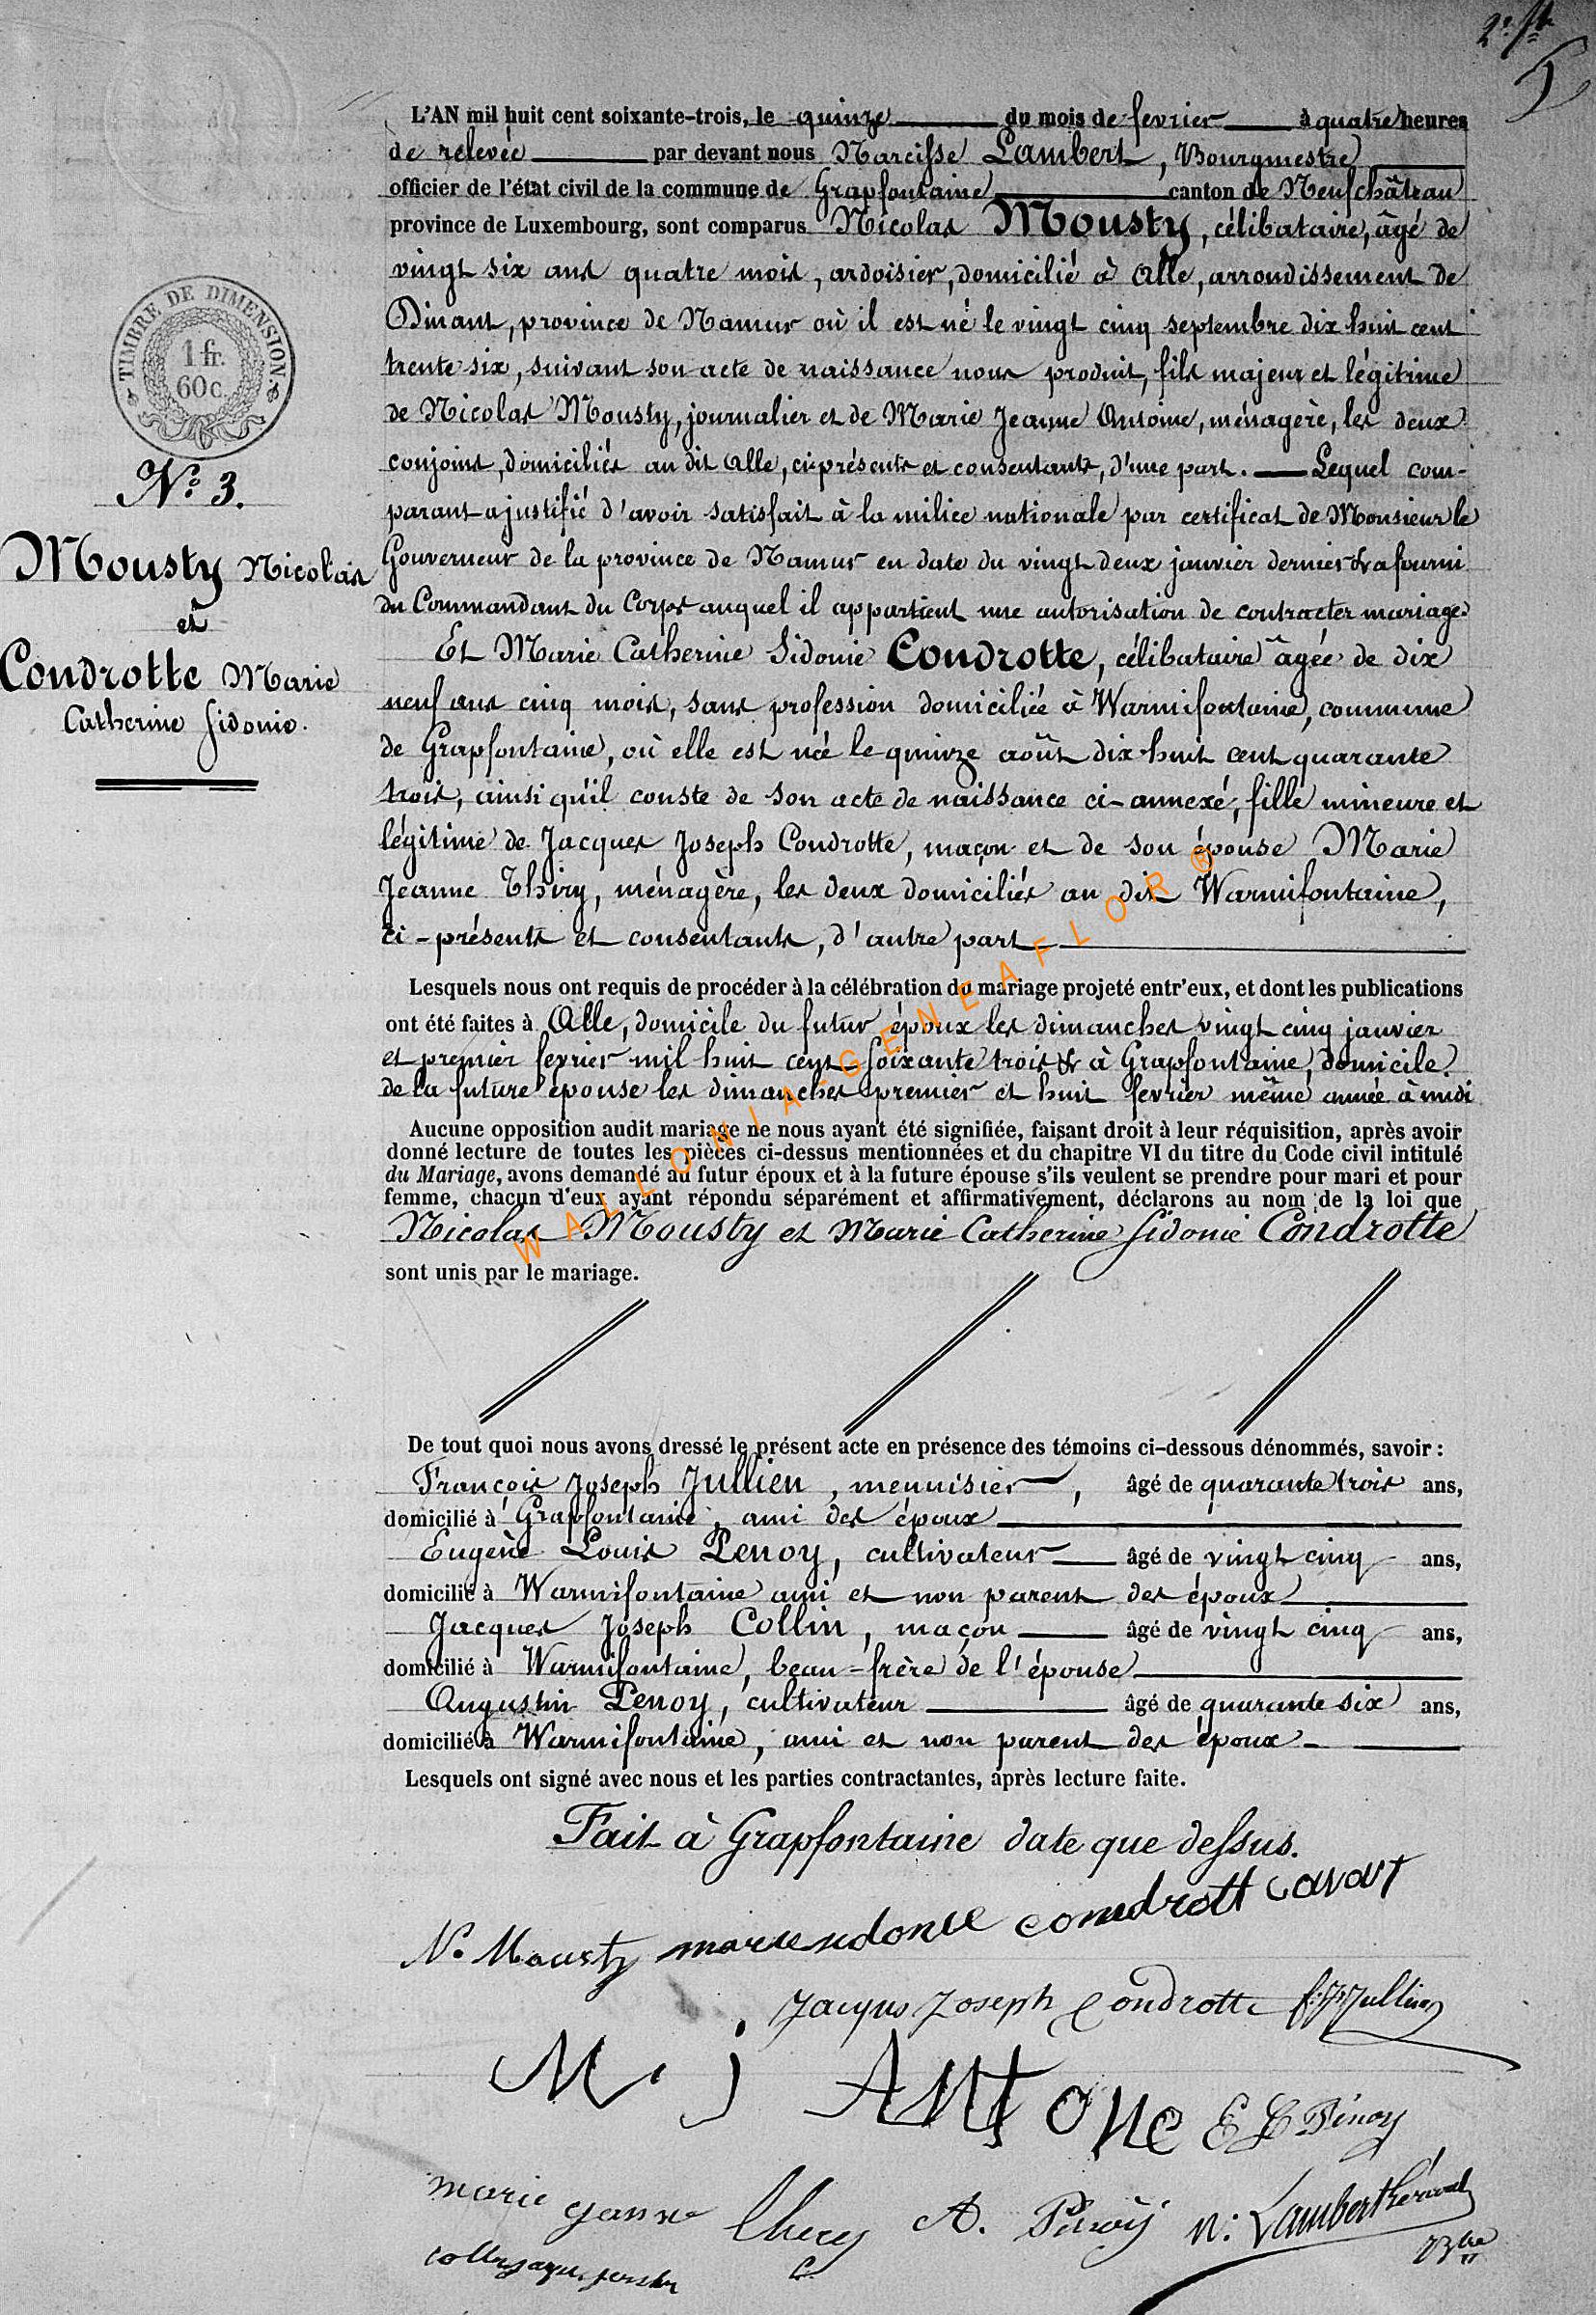 2e ft
5
L'AN mil huit cent soixante-trois, le quinze du mois de fevrier à quatre heures
de relevée par devant nous Narcisse Lambert, Bourgmestre
officier de l'état civil de la commune de Grapfontaine canton de Neufchâteau
province de Luxembourg, sont comparus Nicolas Mousty, célibataire, âgé de
vingt six ans quatre mois, ardoisier, domicilié à Alle, arrondissement de
Dinant, province de Namur où il est né le vingt cinq septembre dix huit cent
trente six, suivant son acte de naissance nous produit, fils majeur et légitime
de Nicolas Mousty, journalier et de Marie Jeanne Antoine, ménagère, les deux
conjoins, domiciliés au dit Alle, ci-présents et consentants, d'une part. — Lequel com-
parant a justifié d'avoir satisfait à la milice nationale par certificat de Monsieur le
Gouverneur de la province de Namur en date du vingt deux janvier dernier & a fourni
du Commandant du Corps auquel il appartient une autorisation de contracter mariage.
Et Marie Catherine Sidonie Condrotte, célibataire âgée de dix
neuf ans cinq mois, sans profession domiciliée à Warmifontaine, commune
de Grapfontaine, où elle est née le quinze août dix huit cent quarante
trois, ainsi qu'il conste de son acte de naissance ci-annexé, fille mineure et
légitime de Jacques Joseph Condrotte, maçon et de son épouse Marie
Jeanne Thiry, ménagère, les deux domiciliés au dit Warmifontaine,
ci-présents et consentants, d'autre part
Lesquels nous ont requis de procéder à la célébration du mariage projeté entr'eux, et dont les publications
ont été faites à Alle, domicile du futur époux les dimanches vingt cinq janvier
et premier fevrier mil huit cent soixante trois & à Grapfontaine, domicile
de la future épouse les dimanches premier et huit fevrier même année à midi
Aucune opposition audit mariage ne nous ayant été signifiée, faisant droit à leur réquisition, après avoir
donné lecture de toutes les pièces ci-dessus mentionnées et du chapitre VI du titre du Code civil intitulé
du Mariage, avons demandé au futur époux et à la future épouse s'ils veulent se prendre pour mari et pour
femme, chacun d'eux ayant répondu séparément et affirmativement, déclarons au nom de la loi que
Nicolas Mousty et Marie Catherine Sidonie Condrotte
sont unis par le mariage.
De tout quoi nous avons dressé le présent acte en présence des témoins ci-dessous dénommés, savoir :
François Joseph Jullien, menuisier, âgé de quarante trois ans,
domicilié à Grapfontaine, ami des époux
Eugène Louis Penoy, cultivateur âgé de vingt cinq ans,
domicilié à Warmifontaine ami et non parent des époux
Jacques Joseph Collin, maçon âgé de vingt cinq ans,
domicilié à Warmifontaine, beau-frère de l'épouse
Augustin Penoy, cultivateur âgé de quarante six ans,
domicilié à Warmifontaine, ami et non parent des époux
Lesquels ont signé avec nous et les parties contractantes, après lecture faite.
Fait à Grapfontaine date que dessus.
N. Mousty marie sidonie condrott
Jacques Joseph Condrotte f. J. Jullien
M. j ANtoNe E L Pénoy
marie jeanne thiery A. Pénoy N: Lambert
Btre
TIMBRE DE DIMENSION
1 fr.
60 c.
No 3.
Mousty Nicolas
et
Condrotte Marie
Catherine Sidonie.
WALLONIA-GENEAFLOR®